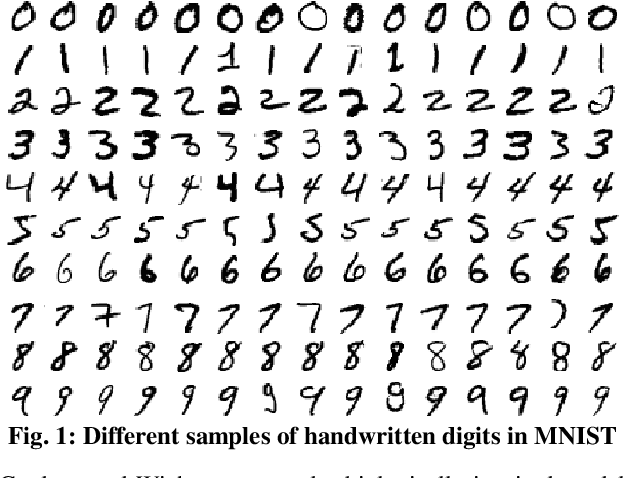 0 0 0 0 0 0 0 0 0 0 0 0 0 0 0
1 1 1 1 1 1 1 1 1 1 1 1 1 1 1
2 2 2 2 2 2 2 2 2 2 2 2 2 2 2
3 3 3 3 3 3 3 3 3 3 3 3 3 3 3
4 4 4 4 4 4 4 4 4 4 4 4 4 4 4
5 5 5 5 5 5 5 5 5 5 5 5 5 5 5
6 6 6 6 6 6 6 6 6 6 6 6 6 6 6
7 7 7 7 7 7 7 7 7 7 7 7 7 7 7
8 8 8 8 8 8 8 8 8 8 8 8 8 8 8
9 9 9 9 9 9 9 9 9 9 9 9 9 9 9
Fig. 1: Different samples of handwritten digits in MNIST